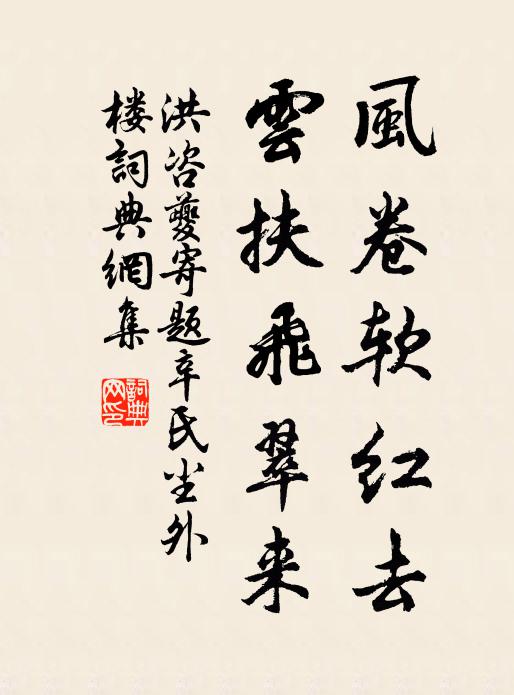 風卷软红去
雲扶飛翠来
洪咨夔寄题辛氏尘外
楼詞典網集
詞典
网印